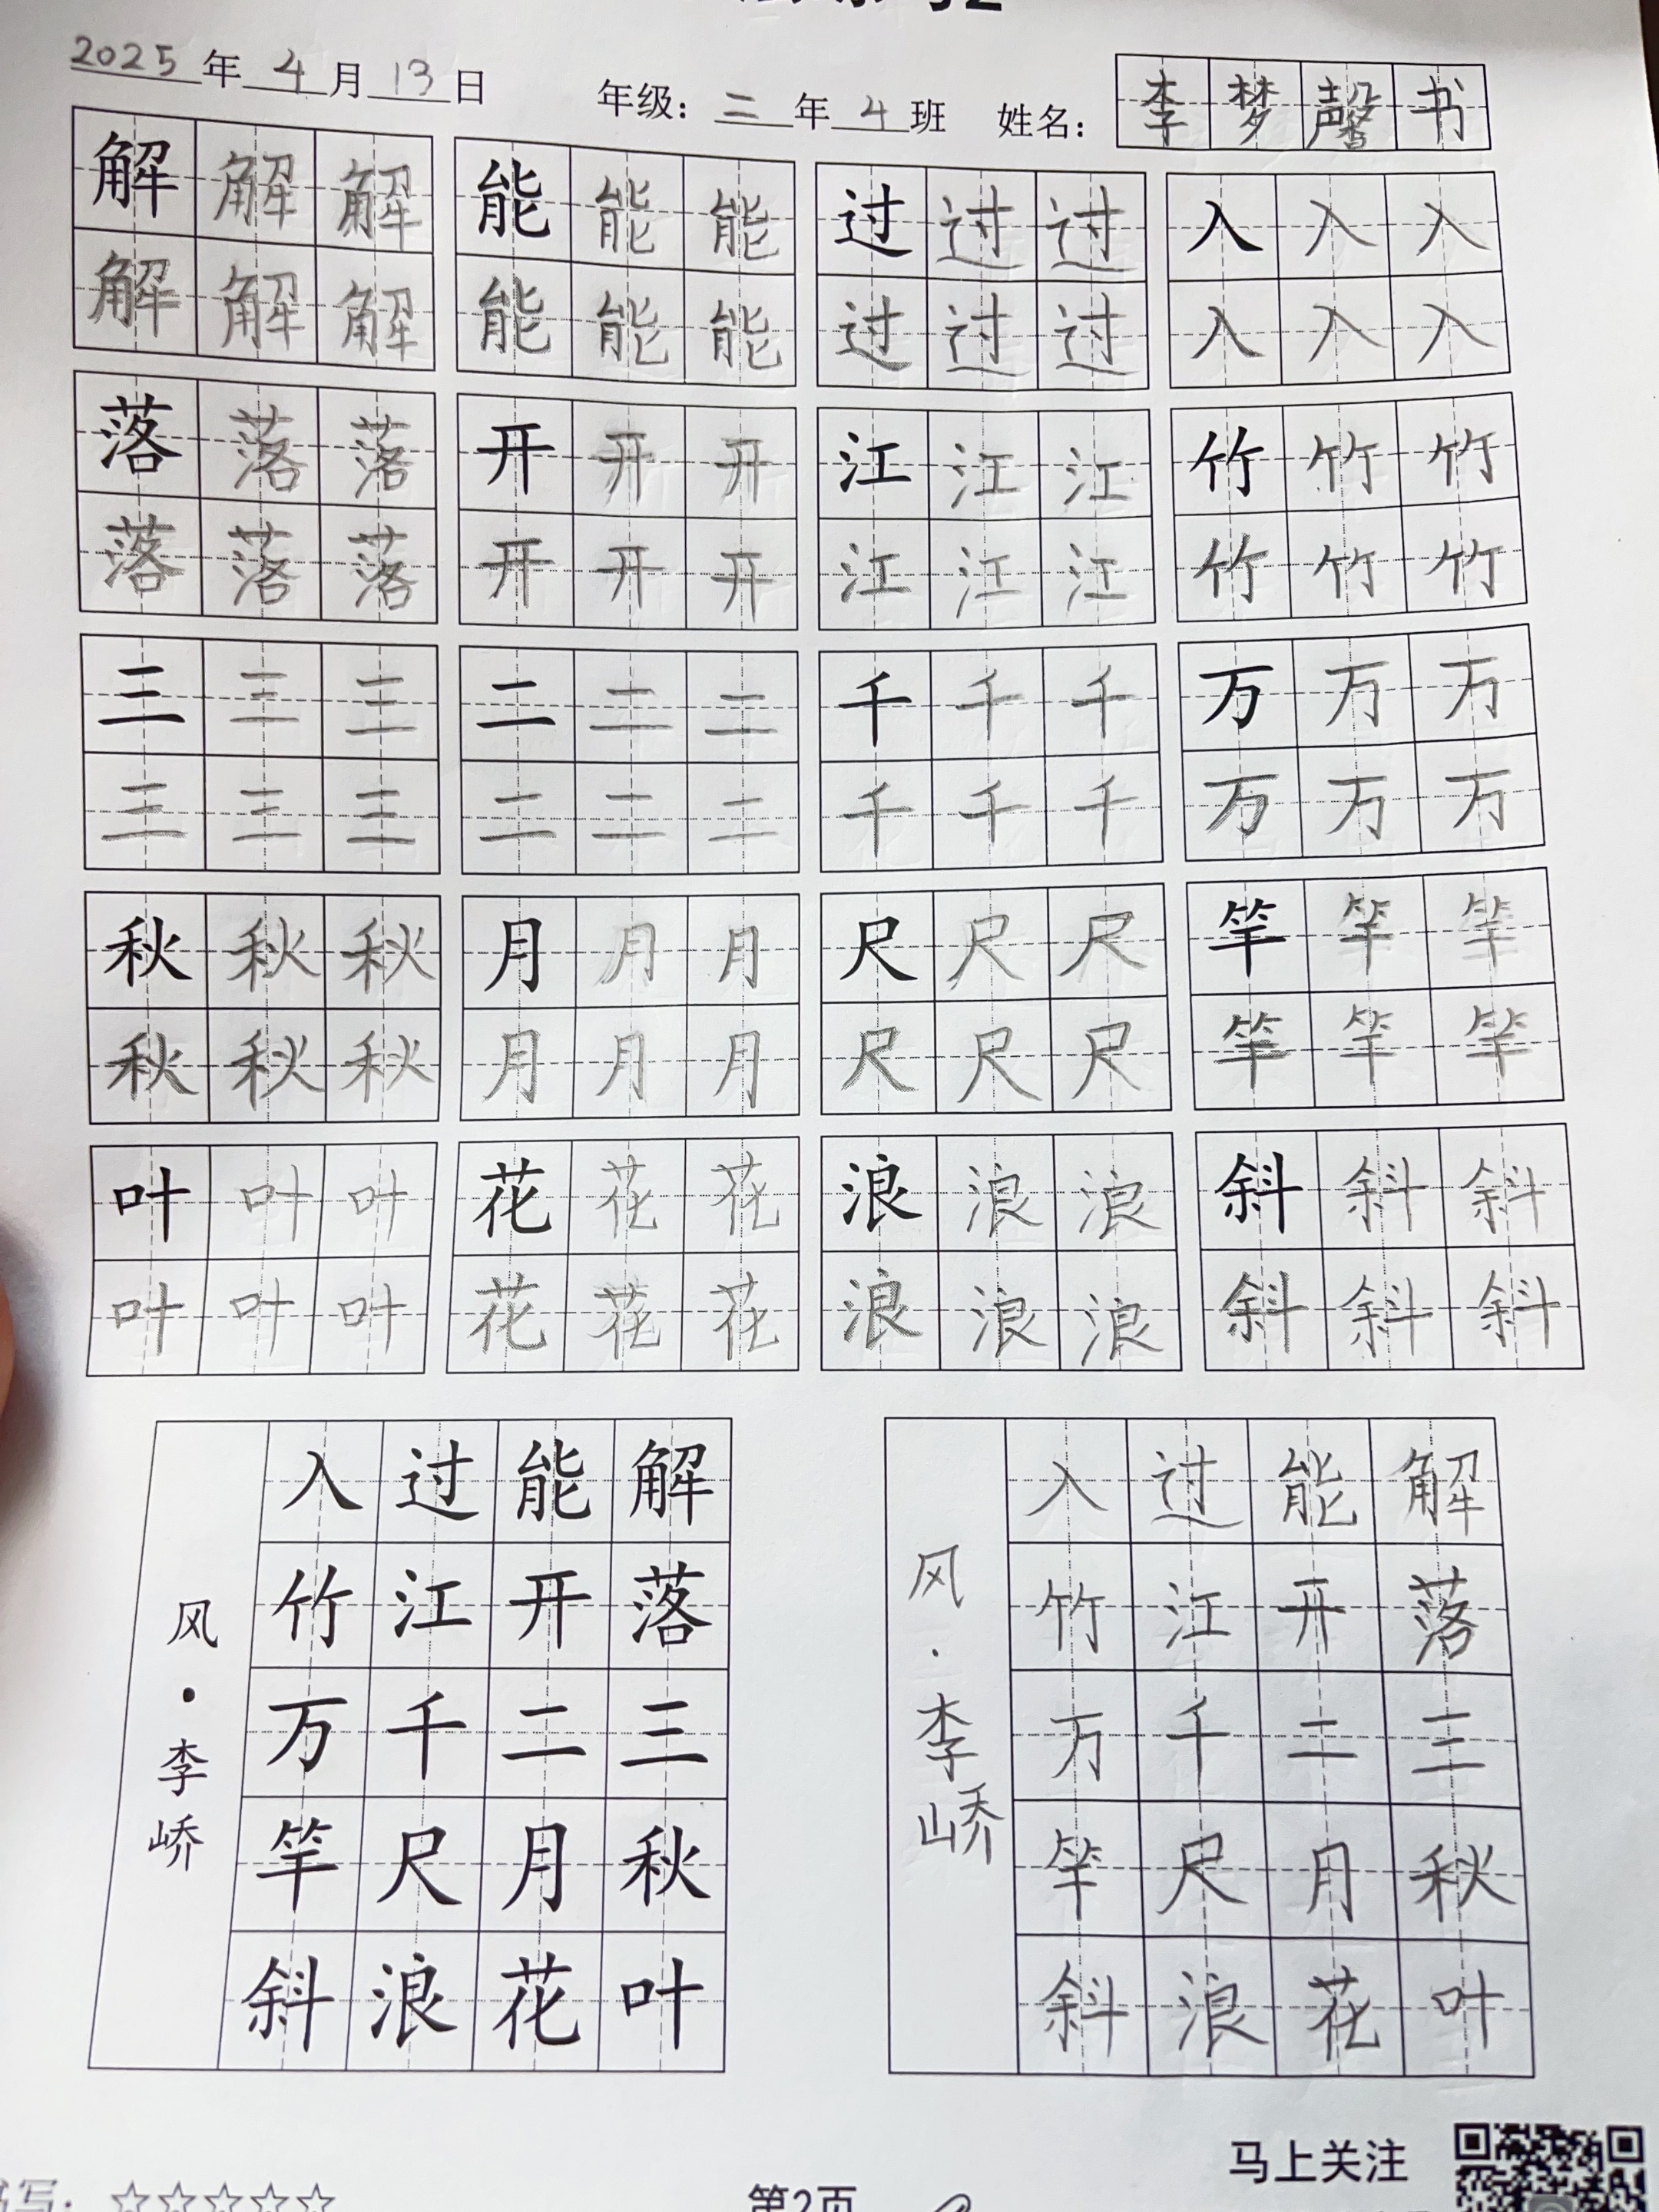 2025年4月13日 年级：二年4班 姓名：李梦馨书
解解解 能能能 过过过 入入入
解解解 能能能 过过过 入入入
落落落 开开开 江江江 竹竹竹
落落落 开开开 江江江 竹竹竹
三三三 二二二 千千千 万万万
三三三 二二二 千千千 万万万
秋秋秋 月月月 尺尺尺 竿竿竿
秋秋秋 月月月 尺尺尺 竿竿竿
叶叶叶 花花花 浪浪浪 斜斜斜
叶叶叶 花花花 浪浪浪 斜斜斜
解落三秋叶
能开二月花
过江千尺浪
入竹万竿斜
风·李峤
解落三秋叶
能开二月花
过江千尺浪
入竹万竿斜
风·李峤
马上关注
书写：☆☆☆☆☆
第2页